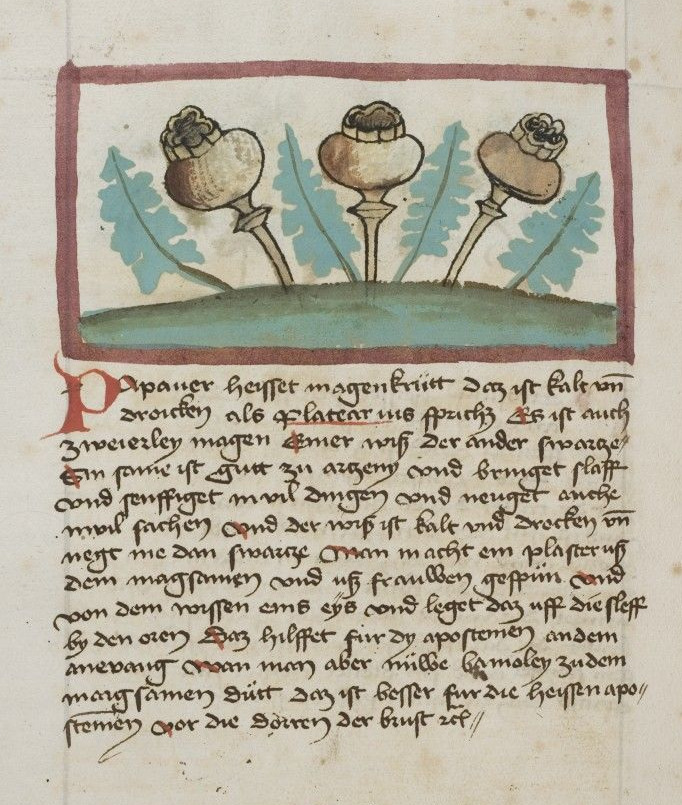 Papauer heisset magenkrutt daz ist kalt vn̄
droicken als Platearius sprichz Es ist auch
zweierley magen Einer wiß der ander swartze
Sin same ist gutt zu artzeny vnd bringet slaff
vnd senfftiget in vil dingen vnd neuget auche
in vil sachen Vnd der wiß ist kalt vnd drocken vn̄
negt me dan swartze Man macht ein plaster uß
dem magsamen vnd uß frauwen gespün vnd
von dem wissen eins eÿs vnd leget daz uff die sleff
by den oren Daz hilffet fur dy apostemen an dem
anevang Wan man aber nüwe bamoley zu dem
magsamen dutt daz ist besser fur die heissen apo〃
stemen vor die dorren der brust ꝛc̄〃